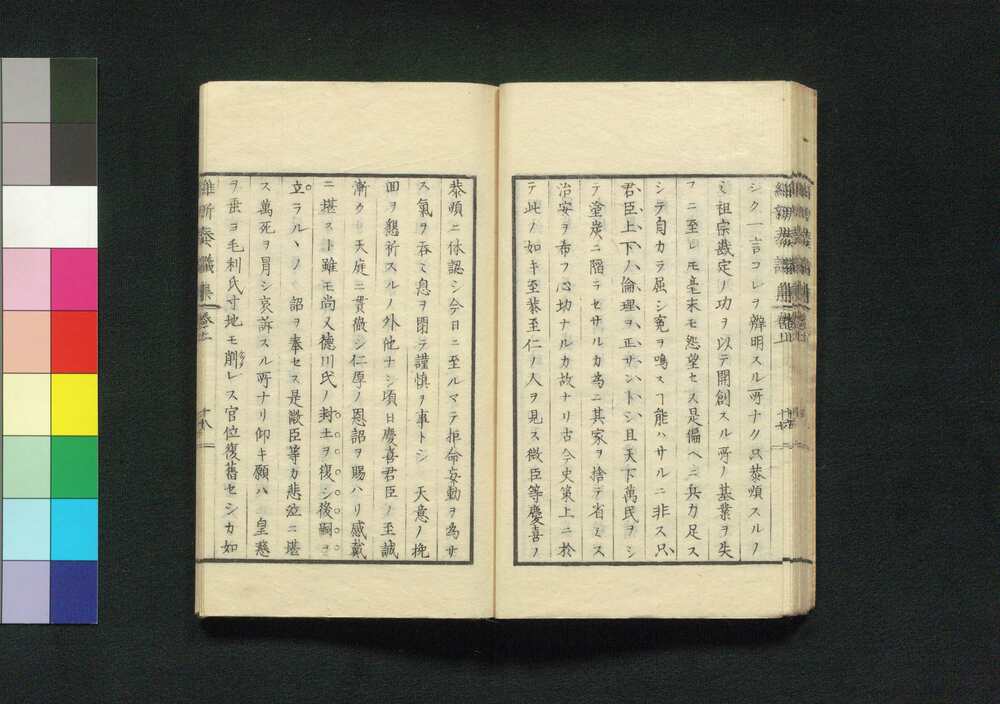 シク一言コレヲ辨明スル所ナク只恭順スルノ
ミ祖宗戡定ノ功ヲ以テ開創スル所ノ基業ヲ失
フニ至レモ毫末モ怨望セス是偏ヘニ兵力足ス
シテ自カラ屈シ寃ヲ鳴スヿ能ハサルニ非ス只
君臣上下ノ倫理ヲ正サントシ且天下萬民ヲシ
テ塗炭ニ陷ラセサルカ為ニ其家ヲ捨テ省ミス
治安ヲ希フ心切ナルカ故ナリ古今史策上ニ於
テ此ノ如キ至恭至仁ノ人ヲ見ス微臣等慶喜ノ
恭順ニ休認シ今日ニ至ルマテ拒命妄動ヲ為サ
ス氣ヲ吞ミ息ヲ閉テ謹慎ヲ事トシ 天意ノ挽
回ヲ懇祈スルノ外他ナシ頃日慶喜君臣ノ至誠
漸ク 天庭ニ貫徹シ仁厚ノ恩詔ヲ賜ハリ感戴
ニ堪スト雖モ尚又徳川氏ノ封土ヲ復シ後嗣ヲ
立ラルヽノ 詔ヲ奉セス是微臣等カ悲泣ニ堪
ス萬死ヲ冒シ哀訴スル所ナリ仰キ願ハ 皇慈
ヲ垂ヨ毛利氏寸地モ削レス官位復舊セシカ如
維新奏議集 卷上 十八